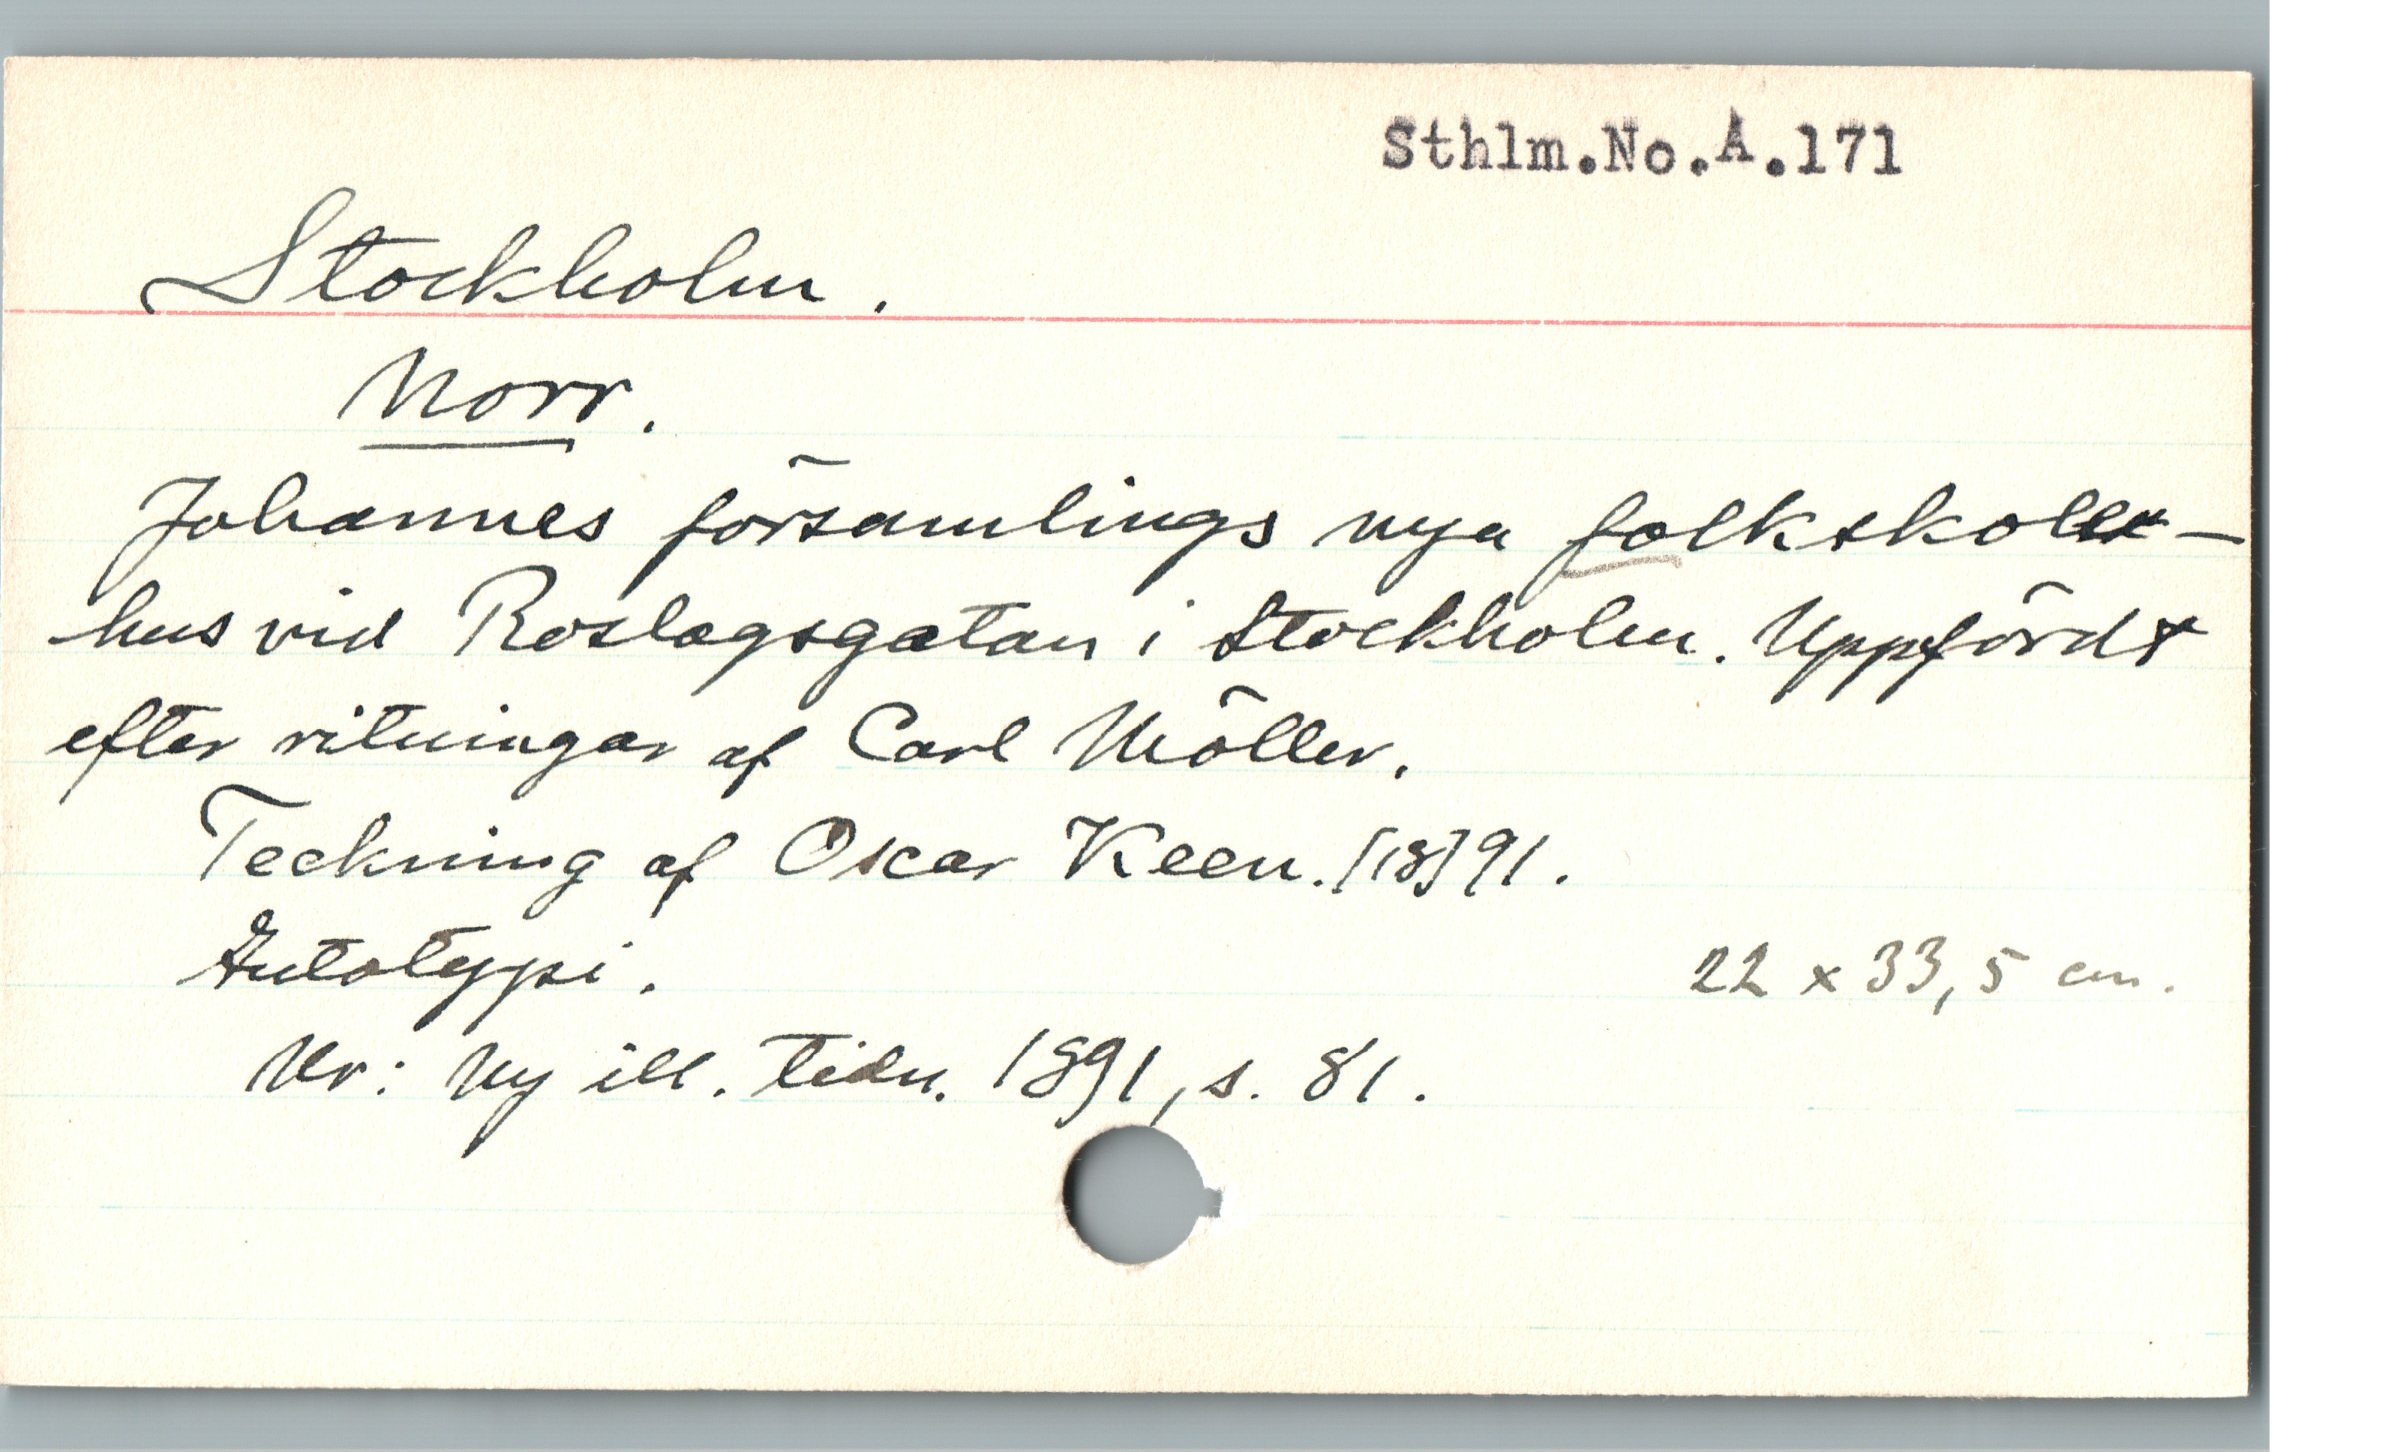 Sthlm.No.A.171
Stockholm.
Norr.
Johannes församlings nya folkskole-
hus vid Roslagsgatan i Stockholm. Uppfördt
efter ritningar af Carl Möller.
Teckning af Oscar Keen. [18]91.
Autotypi. 22 x 33,5 cm.
Ur: Ny ill. tidn. 1891, s. 81.